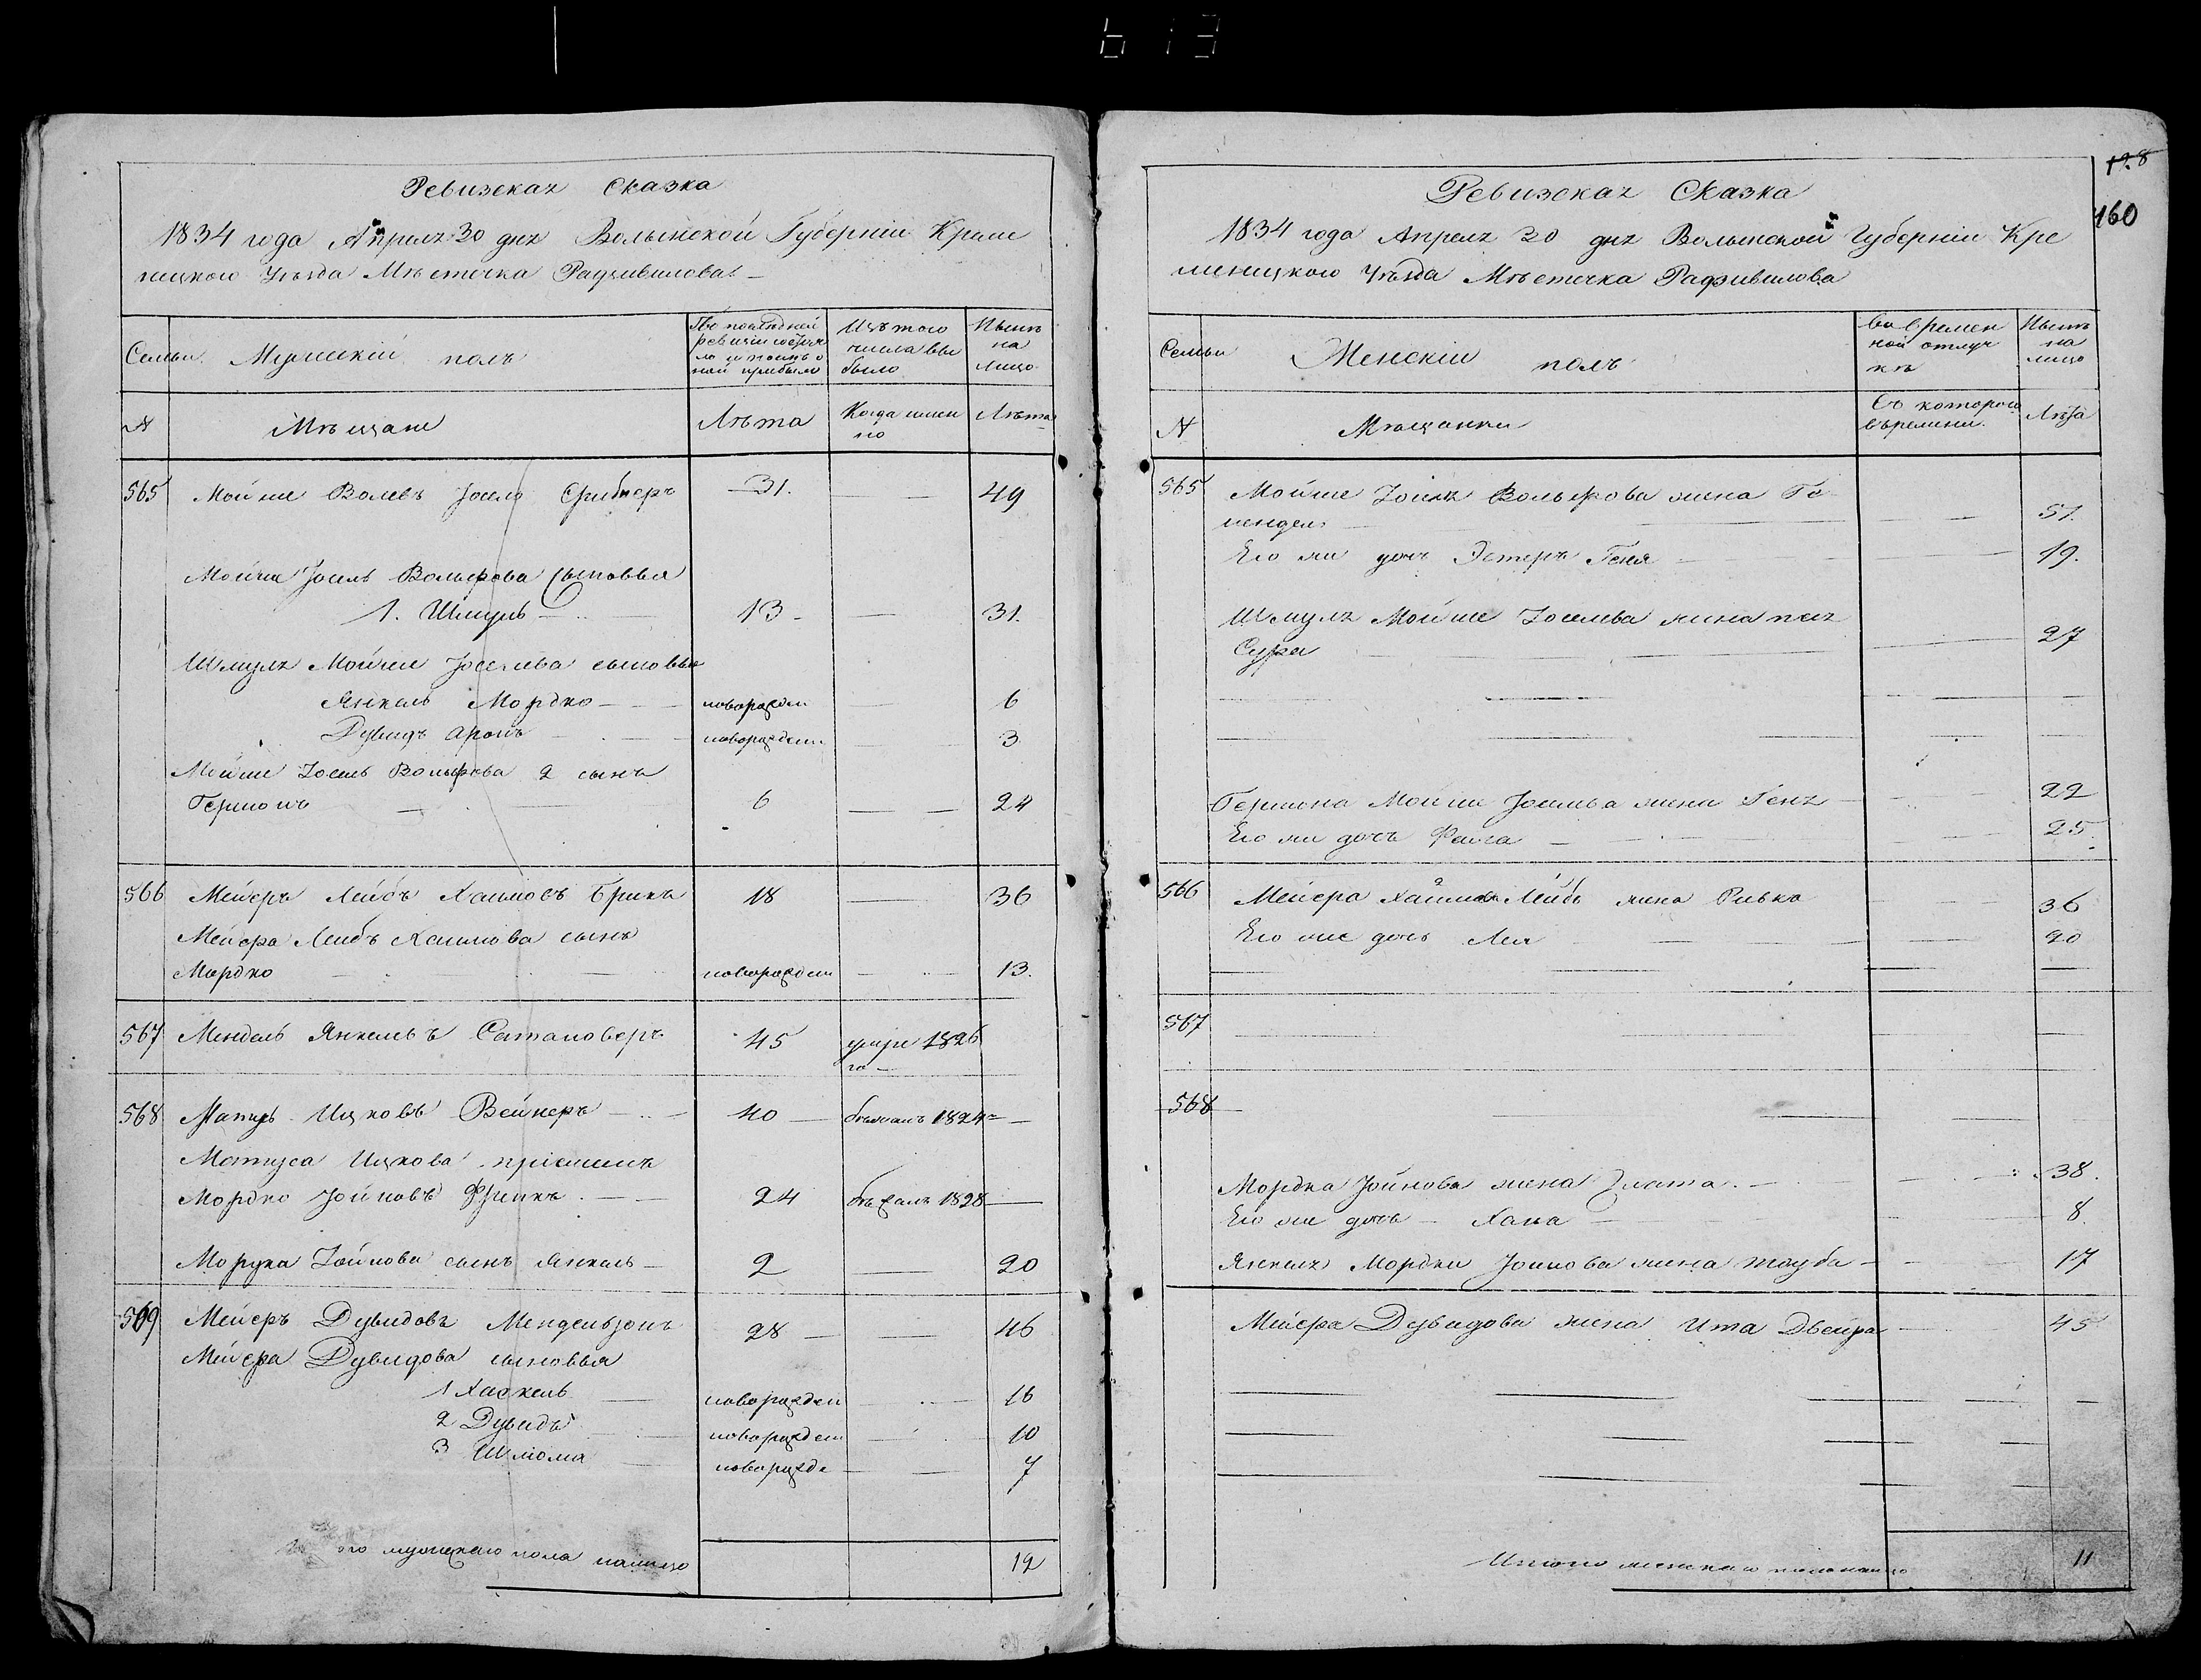 613
Ревизская Сказка
1834 года Апреля 30 дня Волынской Губерніи Креме
нецкого Уѣзда Мѣстечка Радзивилова
Семьи Мужескій полъ
По последней
ревизіи состоя
ло и
ной прибыло
Изъ того
числа вы
было
Нынѣ
на
лицо
№ Мѣщане Лѣта Когда имен
но Лѣта
565 Мойше Волевъ Иосель 31. — 49
Мойше Иосель Вольфова сыновья
1. Шмуль — 13 — 31.
Шмуля Мойше Иоселева сыновья
Янкель Мордко — новорожден — 6
Дувидъ Аронъ — новорожден — 3
Мойше Иосель Вольфова 2 сынъ
Гершонъ — 6 — 24
566 Мейеръ Лейбъ Хаимовъ Брикъ 18 — 36
Мейера Лейбъ Хаимова сынъ
Мордко — новорожден — 13.
567 Мендель Янкелевъ Сатановеръ 45 умре 1826
го —
568 Матусъ Ицковъ Вейнеръ — 40 — бежалъ 1824 —
Матуса Ицкова пріемышъ
Мордко Иойновъ — 24 бежалъ 1828 —
Мордка Иойнова сынъ Янкель — 2 — 20
569 Мейеръ Дувидовъ Мендельзонъ 28 — — 46
Мейера Дувидова сыновья
1 Хаскель — новорожден — 16
2 Дувидъ новорожден — 10
3 Шлома — новорожде — 7
Итого мужескаго пола налицо 12
128
160
Ревизская Сказка
1834 года Апреля 30 дня Волынской Губерніи Кре
менецкого Уѣзда Мѣстечка Радзивилова
Семьи Женскій полъ
Во времен
ной отлуч
кѣ
Нынѣ
на
лицо
№ Мѣщанки
Съ которого
времени.
Лѣта
565 Мойше Иосель Вольфова жена Ге
ненделъ — 51.
Его же дочь Эстеръ Геня — 19.
Шмуля Мойше Иоселева жена
Сура — 27
Гершона Мойше Иоселева жена Геня — 22
Его же дочь Фейга — 25.
566 Мейера Хаимова Лейбъ жена Ривка 36
Его же дочь Лея — 20
567 —
568 —
Мордка Иойнова жена Злата — 38.
Его же дочь — Хана — 8.
Янкеля Мордки Иойнова жена Тауба — 17
Мейера Дувидова жена Ита Двейра — 45
Итого женскаго пола налицо 11